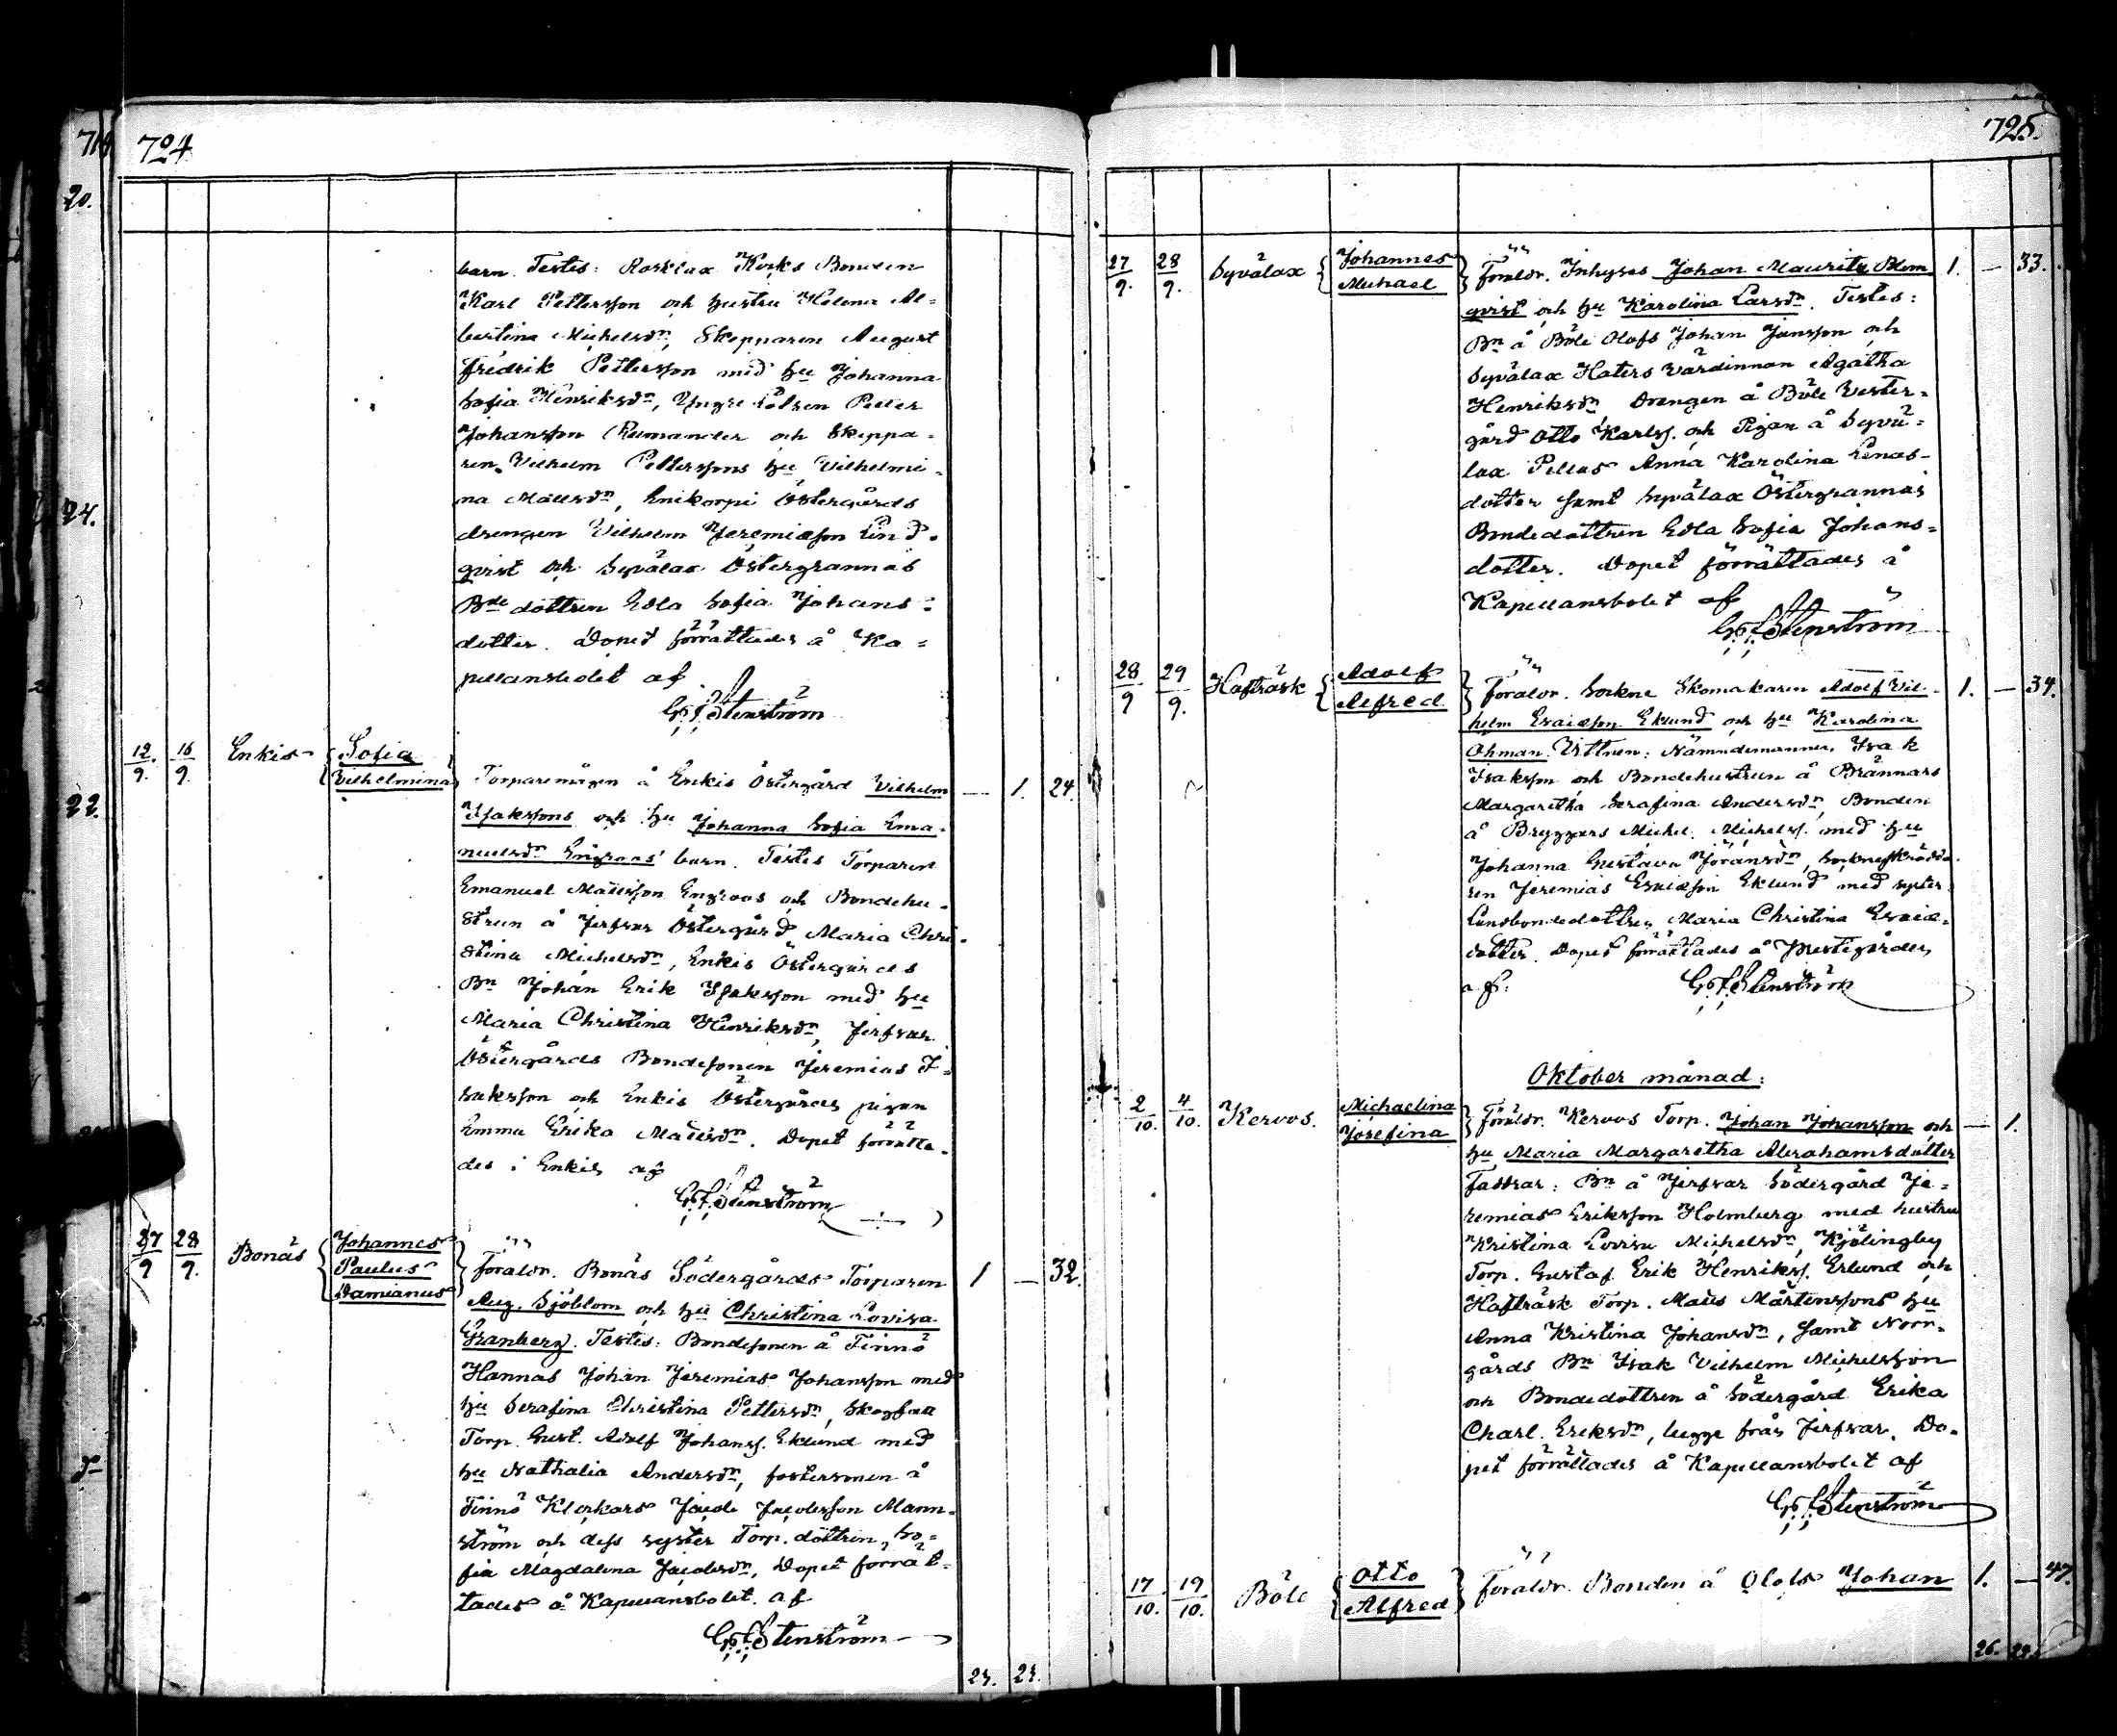 724
barn. Testes: Rosklax Körks Bonden
Karl Pettersson och hustru Helena Al=
bertina Michelsdr, Skepparen August
Fredrik Pettersson med hu Johanna
Sofia Henriksdr, Yngre Petter
Johansson och Skeppa-
ren Vilhelm Petterssons hu Vilhelmi-
na Mattsdr, Östergårds
drengen Vilhelm Jeremiasson Lind-
qvist och Syvälax Östergrannas
Bdedottren Edla Sofia Johans=
dotter. Dopet förrättades å Ka=
pellansbolet af
G. F. Stenström
12/9. 16/9. Enkis Sofia
Vilhelmina Torparemågen å Enkis Östergård Vilhelm — 1. 24.
Isakssons och hu Johanna Sofia Ema-
nuelsdr Engroos' barn. Testes Torparen
Emanuel Mattsson Engroos och Bondehu-
strun å Jerfsar Östergård Maria Chri-
stina Michelsdr, Enkis Östergårds
Bn Johan Erik Isaksson med hu
Maria Christina Henriksdr, Jerfsar
Östergårds Bondesonen Jeremias I-
saksson och Enkis Östergårds pigan
Emma Erika Mattsdr. Dopet förrätta-
des i Enkis af
G. F. Stenström
27/9 28/9. Bonäs Johannes
Paulus
Damianus Föräldr. Bonäs Södergårds Torparen 1 — 32.
Aug. Sjöblom och hu Christina Lovisa
Granberg. Testes: Bondesonen å Finnö
Hannas Johan Jeremias Johansson med
hu Serafina Christina Pettersdr,
Torp. Gust. Adolf Johanss. Eklund med
hu Nathalia Andersdr, fostersonen å
Finnö Klockars Jacob Jacobsson Mann-
ström och dess syster Torp. dottren So=
fia Magdalena Jacobsdr, Dopet förrät-
tades å Kapellansbolet af
G. F. Stenström
23. 23.
725.
27/9. 28/9. Syvälax Johannes
Michael Föräldr. Inhyses Johan Mauritz Blom- 1. — 33.
qvist och hu Karolina Larsdr. Testes:
Bn å Böle Olofs Johan Jansson och
Syvälax Haters Värdinnan Agatha
Henriksdr, Drengen å Böle Vester-
gård Otto Karlss. och Pigan å Syvä-
lax Pellas Anna Karolina Lenas-
dotter samt Syvälax Östergrannas
Bondedottren Edla Sofia Johans=
dotter. Dopet förrättades å
Kapellansbolet af
G. F. Stenström
28/9 29/9. Hafträsk Adolf
Alfred Föräldr. Sockne Skomakaren Adolf Vil- 1. — 34.
helm Esaiasson Eklund och hu Karolina
Öhman. Vittnen: Nämndemannen Isak
Isaksson och Bondehustrun å Brännars
Margaretha Serafina Andersdr, Bonden
å Bryggars Michel Michelss. med hu
Johanna Gustava Göransdr, Sockneskrädda-
ren Jeremias Esaiasson Eklund med syster
Landbondedottren Maria Christina Esaie-
dotter. Dopet förrättades å Prestegården
af G. F. Stenström
Oktober månad:
2/10. 4/10. Kervos. Michaelina
Josefina Föräldr. Kervos Torp. Johan Johansson och — 1.
hu Maria Margaretha Abrahamsdotter
Faddrar: Bn å Jerfsar Södergård Je=
remias Eriksson Holmberg med hustru
Kristina Lovisa Michelsdr, Kjölingby
Torp. Gustaf Erik Henrikss. Erlund och
Hafträsk Torp. Matts Mårtenssons hu
Anna Kristina Johansdr, samt Norr-
gårds Bn Isak Vilhelm Michelsson
och Bondedottren å Södergård Erika
Charl. Eriksdr, begge från Jerfsar. Do-
pet förrättades å Kapellansbolet af
G. F. Stenström
17/10. 19/10. Böle Otto
Alfred Föräldr. Bonden å Olofs Johan 1. — 47.
26. 24.